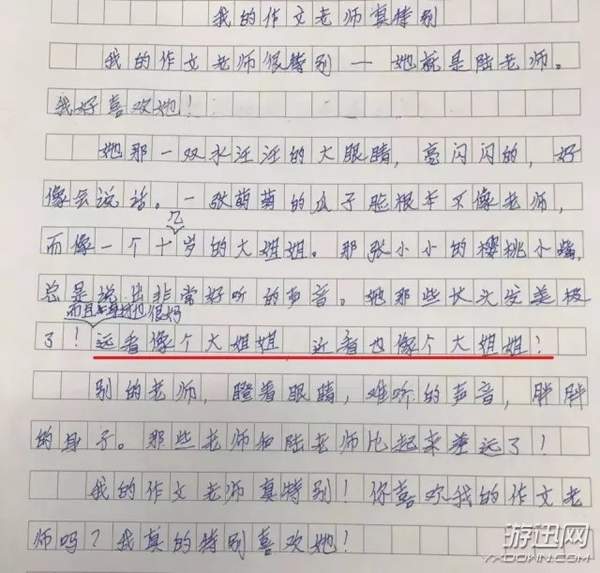 我的作文老师真特别
我的作文老师很特别一她就是陆老师。
我好喜欢她！
她那一双水汪汪的大眼睛，亮闪闪的，好
像会说话。一张萌萌的瓜子脸根本不像老师，
几
而像一个十岁的大姐姐。那张小小的樱桃小嘴，
总是说出非常好听的声音。她那些长头发美极
而且身材也很好
了！远看像个大姐姐 近看也像个大姐姐！
别的老师，瞪着眼睛，难听的声音，胖胖
的身子。那些老师和陆老师比起来差远了！
我的作文老师真特别！你喜欢我的作文老
师吗？我真的特别喜欢她！
游迅网
YXDOWN.COM